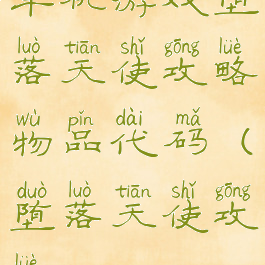 单机游戏堕
luò tiān shǐ gōng lüè
落天使攻略
wù pǐn dài mǎ
物品代码（
duò luò tiān shǐ gōng
堕落天使攻
lüè